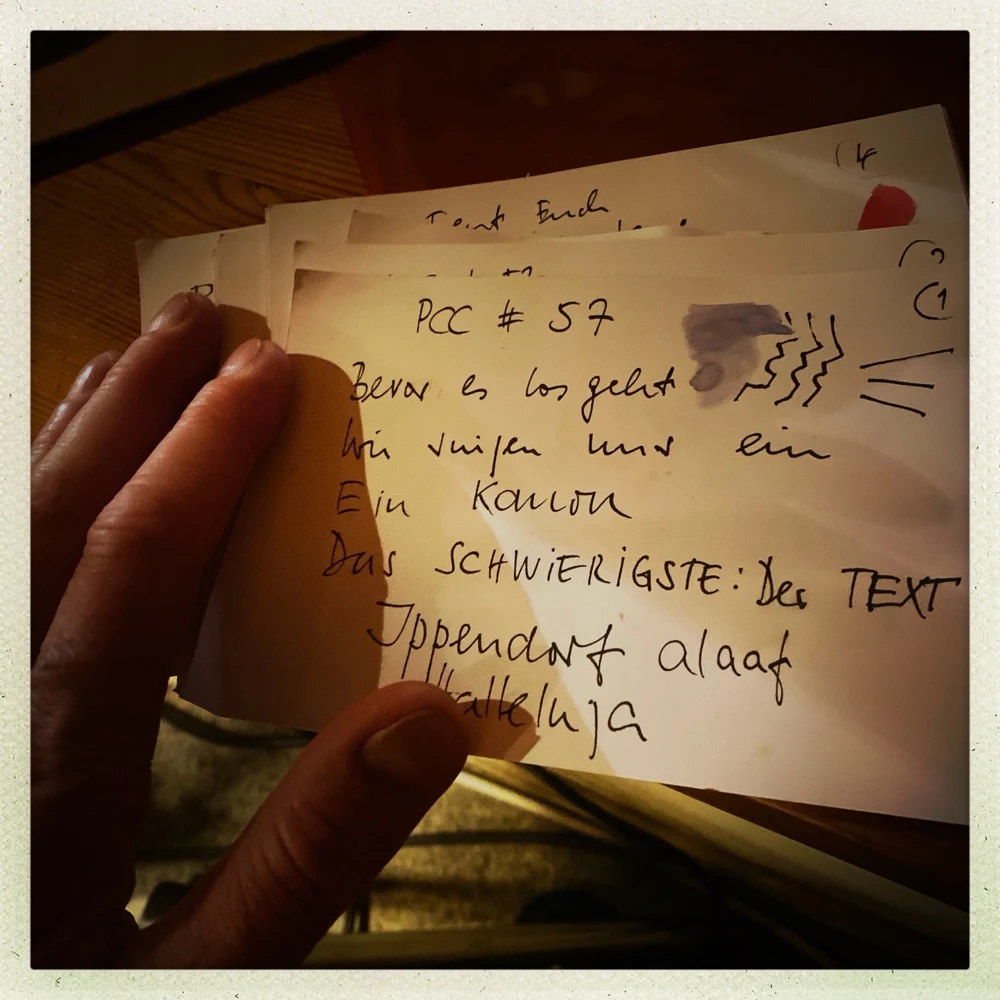 (4
Euch
PCC # 57
(1
Bevor es los geht
Wir singen uns ein
Ein Kanon
Das SCHWiERiGSTE: Der TEXT
Ippendorf alaaf
Halleluja